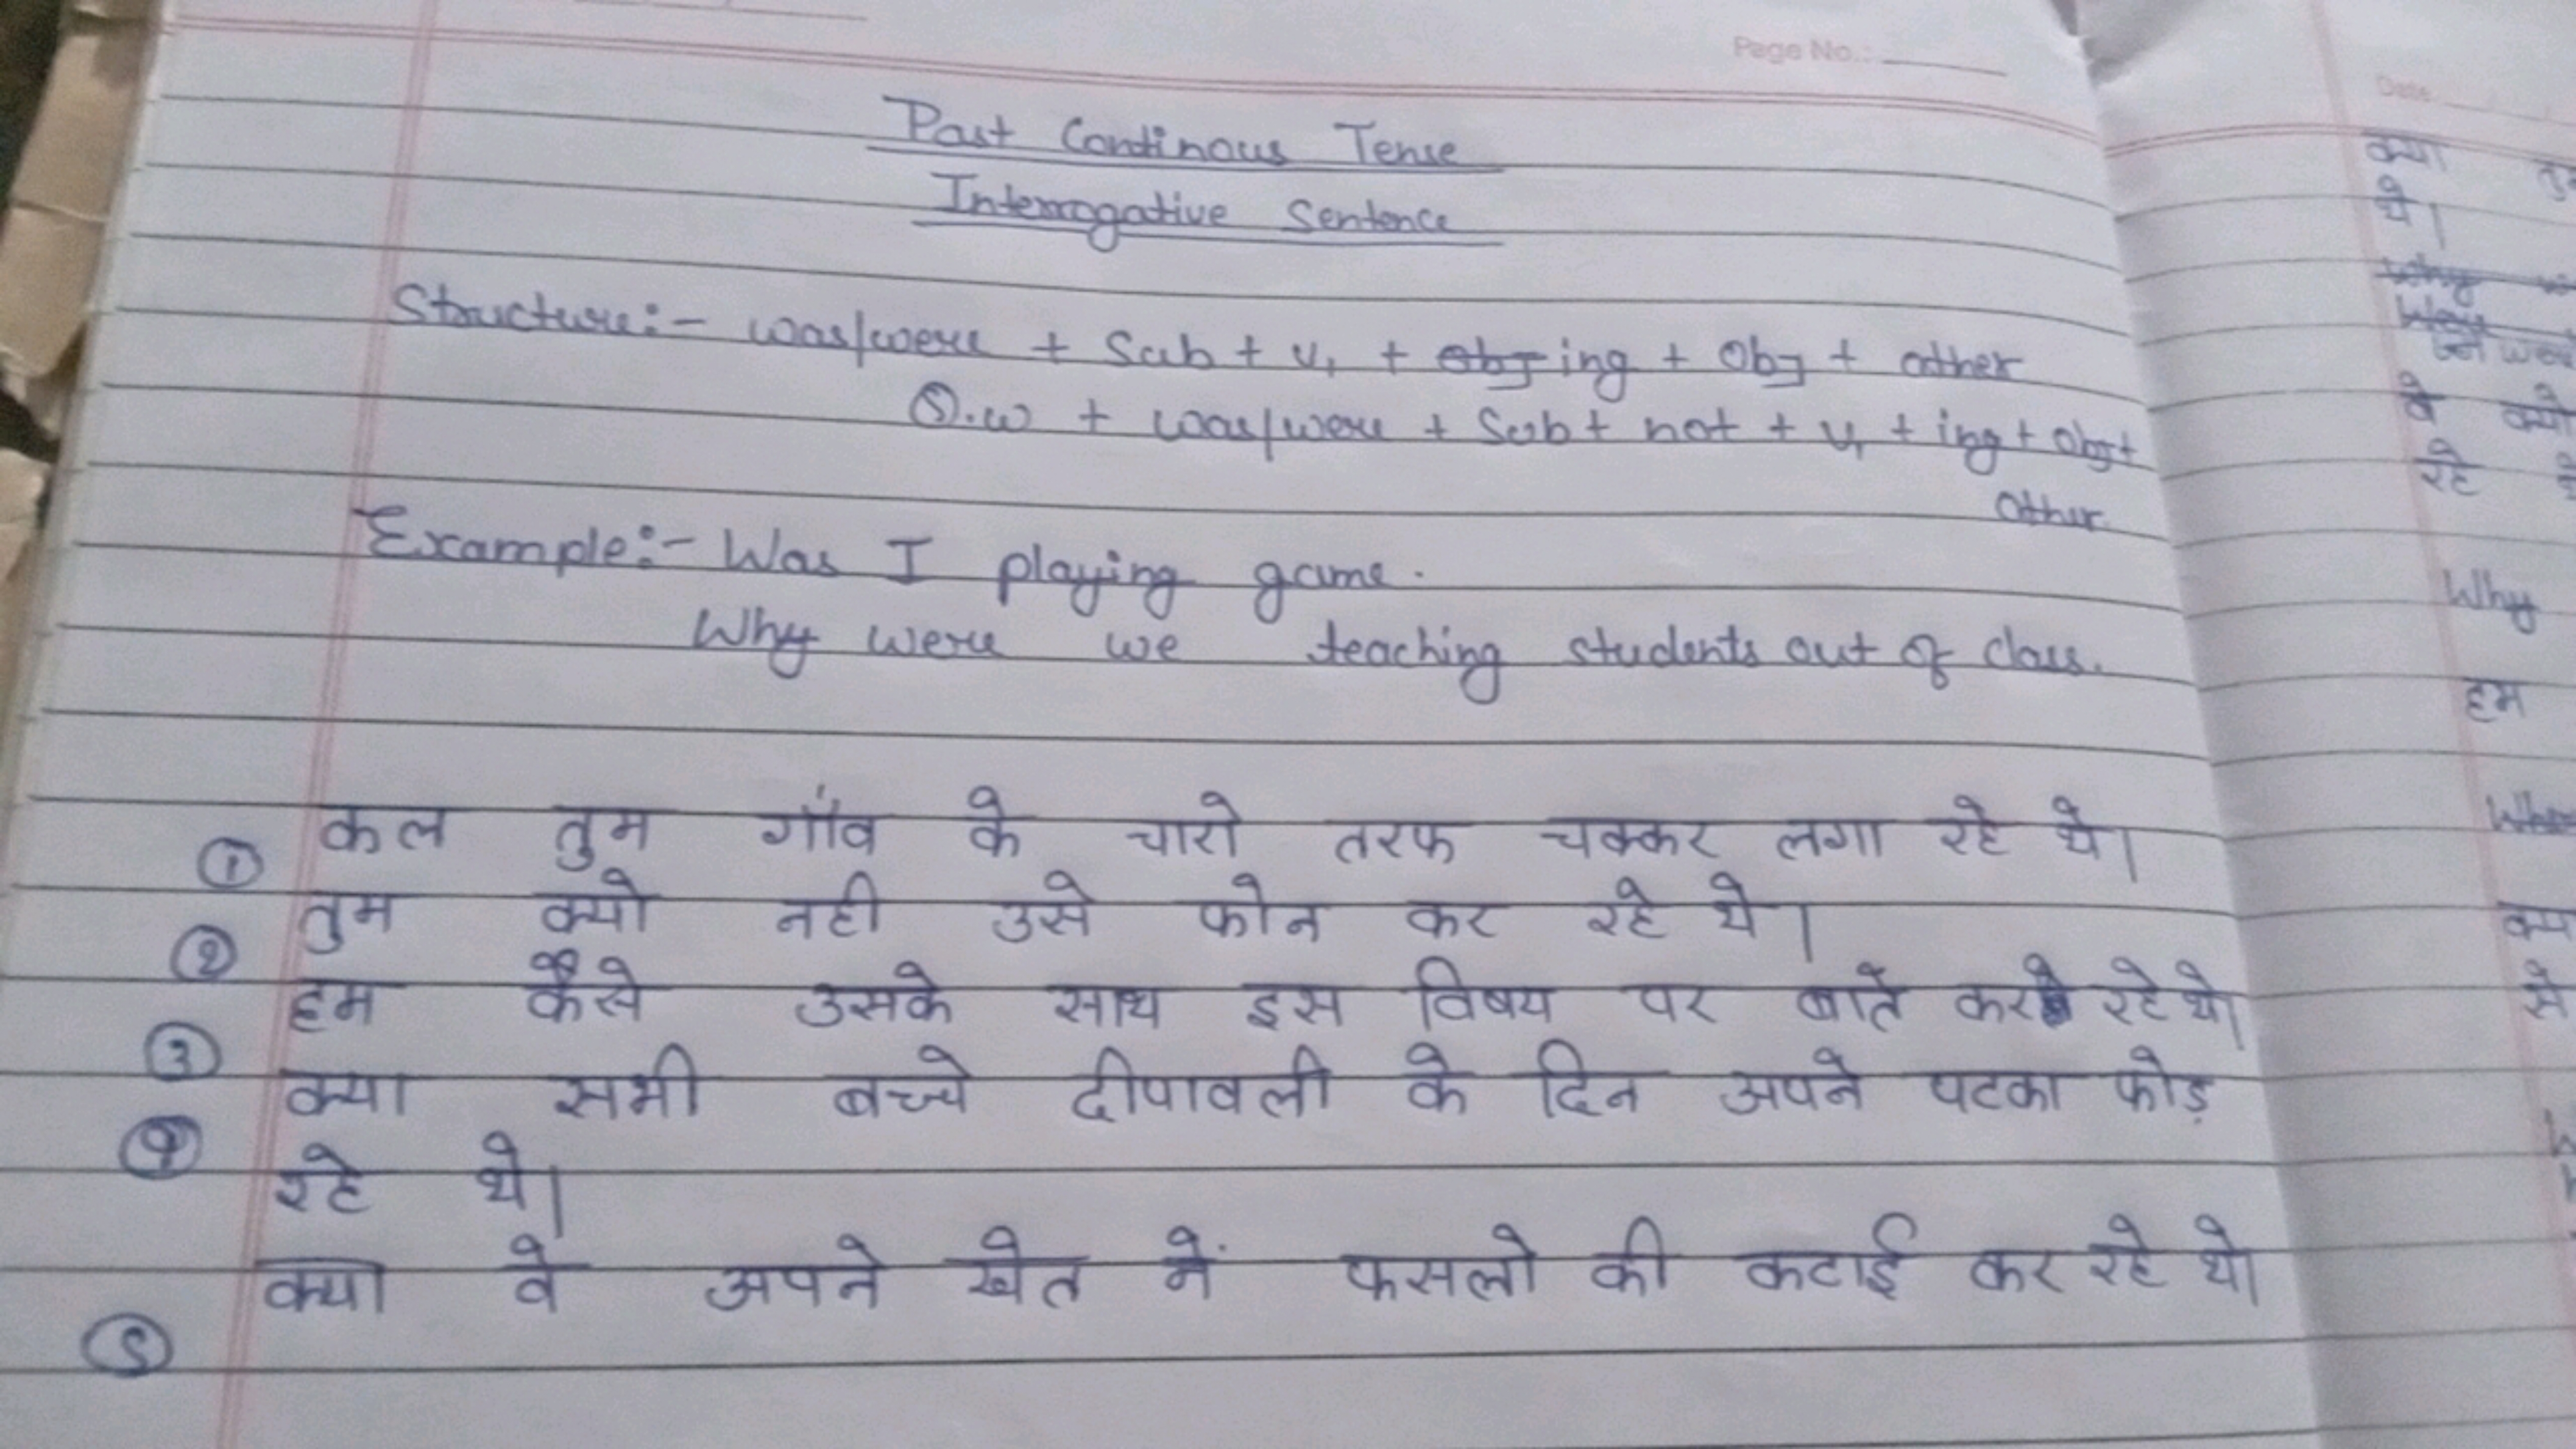 Page No.:
Past Continous Tense
Interrogative Sentence
Structure:- was/were + Sub + V₁ + ing + Obj + other
Q.w + was/were + Sub + not + V₁ + ing + obj +
other
Example:- Was I playing game.
Why were we teaching students out of class.
① कल तुम गाँव के चारो तरफ चक्कर लगा रहे थे।
② तुम क्यो नही उसे फोन कर रहे थे।
③ हम कैसे उसके साथ इस विषय पर बाते कर रहे थे।
④ क्या सभी बच्चे दीपावली के दिन अपने पटका फोड़
रहे थे।
⑤ क्या वे अपने खेत में फसलो की कटाई कर रहे थे।
Date
क्या
थे।
वे क्यो
रहे
Why
हम